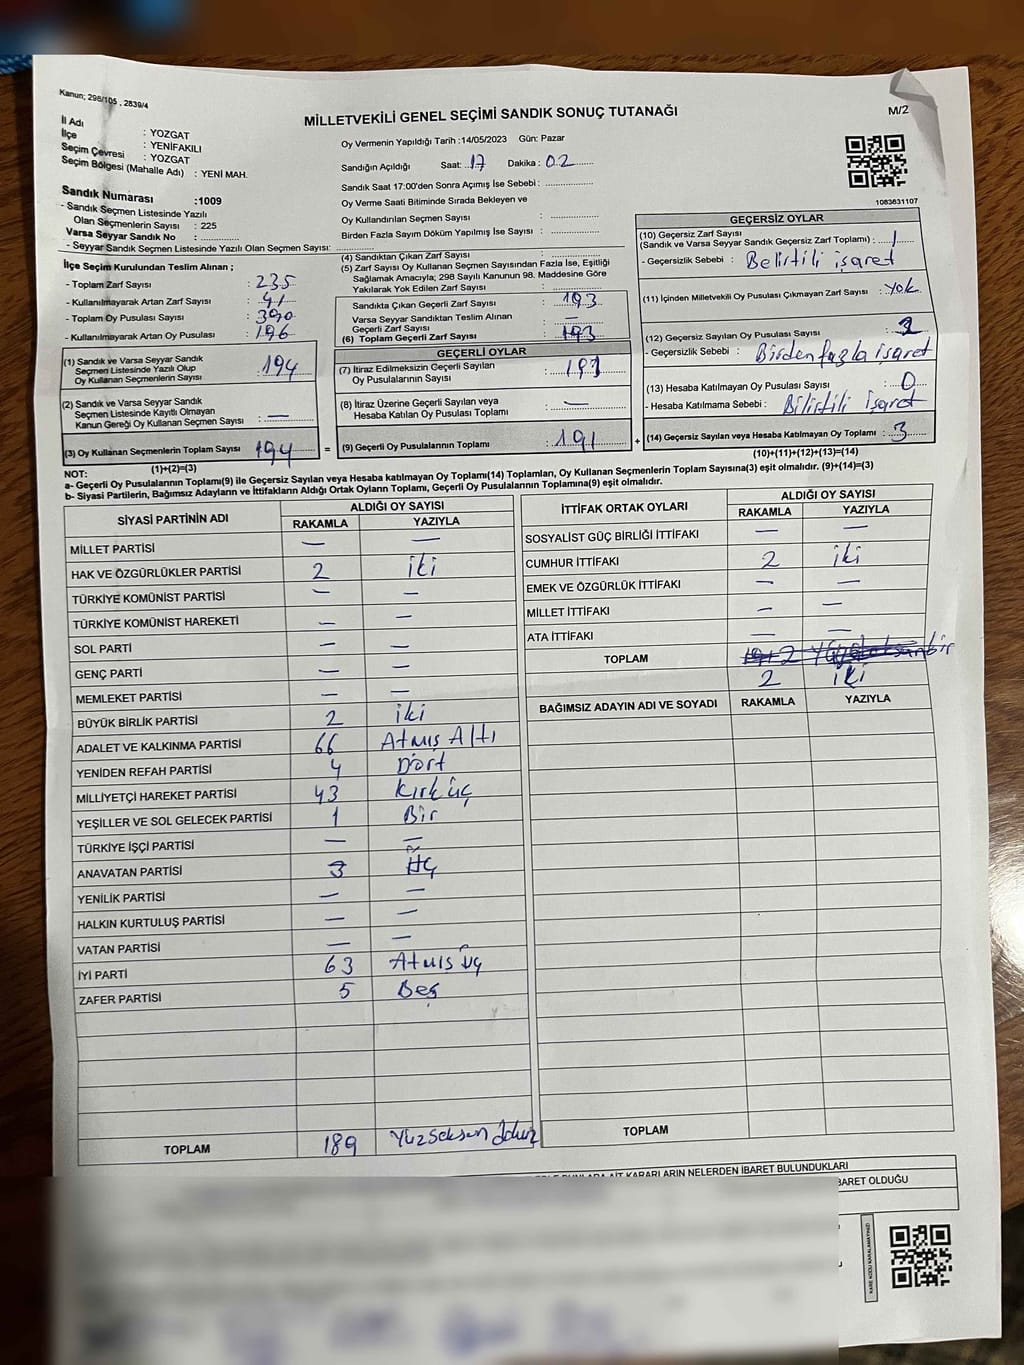 Kanun; 298/105 , 2839/4
MİLLETVEKİLİ GENEL SEÇİMİ SANDIK SONUÇ TUTANAĞI
M/2
İl Adı : YOZGAT
İlçe : YENİFAKILI
Seçim Çevresi : YOZGAT
Seçim Bölgesi (Mahalle Adı) : YENİ MAH.
Sandık Numarası :1009
- Sandık Seçmen Listesinde Yazılı
Olan Seçmenlerin Sayısı : 225
Varsa Seyyar Sandık No :
- Seyyar Sandık Seçmen Listesinde Yazılı Olan Seçmen Sayısı:
Oy Vermenin Yapıldığı Tarih :14/05/2023 Gün: Pazar
Sandığın Açıldığı Saat: 17 Dakika : 02
Sandık Saat 17:00'den Sonra Açımış İse Sebebi :
Oy Verme Saati Bitiminde Sırada Bekleyen ve
Oy Kullandırılan Seçmen Sayısı :
Birden Fazla Sayım Döküm Yapılmış İse Sayısı :
1083631107
İlçe Seçim Kurulundan Teslim Alınan ;
- Toplam Zarf Sayısı : 235
- Kullanılmayarak Artan Zarf Sayısı : 41
- Toplam Oy Pusulası Sayısı : 390
- Kullanılmayarak Artan Oy Pusulası : 196
(1) Sandık ve Varsa Seyyar Sandık
Seçmen Listesinde Yazılı Olup
Oy Kullanan Seçmenlerin Sayısı : 194
(2) Sandık ve Varsa Seyyar Sandık
Seçmen Listesinde Kayıtlı Olmayan
Kanun Gereği Oy Kullanan Seçmen Sayısı : —
(3) Oy Kullanan Seçmenlerin Toplam Sayısı : 194
(1)+(2)=(3)
(4) Sandıktan Çıkan Zarf Sayısı :
(5) Zarf Sayısı Oy Kullanan Seçmen Sayısından Fazla İse, Eşitliği
Sağlamak Amacıyla; 298 Sayılı Kanunun 98. Maddesine Göre
Yakılarak Yok Edilen Zarf Sayısı :
Sandıkta Çıkan Geçerli Zarf Sayısı : 193
Varsa Seyyar Sandıktan Teslim Alınan
Geçerli Zarf Sayısı : —
(6) Toplam Geçerli Zarf Sayısı : 193
GEÇERLİ OYLAR
(7) İtiraz Edilmeksizin Geçerli Sayılan
Oy Pusulalarının Sayısı : 191
(8) İtiraz Üzerine Geçerli Sayılan veya
Hesaba Katılan Oy Pusulası Toplamı : —
= (9) Geçerli Oy Pusulalarının Toplamı : 191 +
GEÇERSİZ OYLAR
(10) Geçersiz Zarf Sayısı
(Sandık ve Varsa Seyyar Sandık Geçersiz Zarf Toplamı) : 1
- Geçersizlik Sebebi : Belirtili işaret
(11) İçinden Milletvekili Oy Pusulası Çıkmayan Zarf Sayısı : Yok
(12) Geçersiz Sayılan Oy Pusulası Sayısı :
- Geçersizlik Sebebi : Birden fazla işaret
(13) Hesaba Katılmayan Oy Pusulası Sayısı : 0
- Hesaba Katılmama Sebebi : Bilirtili işaret
(14) Geçersiz Sayılan veya Hesaba Katılmayan Oy Toplamı : 3
(10)+(11)+(12)+(13)=(14)
NOT:
a- Geçerli Oy Pusulalarının Toplamı(9) ile Geçersiz Sayılan veya Hesaba katılmayan Oy Toplamı(14) Toplamları, Oy Kullanan Seçmenlerin Toplam Sayısına(3) eşit olmalıdır. (9)+(14)=(3)
b- Siyasi Partilerin, Bağımsız Adayların ve İttifakların Aldığı Ortak Oyların Toplamı, Geçerli Oy Pusulalarının Toplamına(9) eşit olmalıdır.
SİYASİ PARTİNİN ADI ALDIĞI OY SAYISI
RAKAMLA YAZIYLA
MİLLET PARTİSİ — —
HAK VE ÖZGÜRLÜKLER PARTİSİ 2 iki
TÜRKİYE KOMÜNİST PARTİSİ — —
TÜRKİYE KOMÜNİST HAREKETİ — —
SOL PARTİ — —
GENÇ PARTİ — —
MEMLEKET PARTİSİ — —
BÜYÜK BİRLİK PARTİSİ 2 iki
ADALET VE KALKINMA PARTİSİ 66 Atmış Altı
YENİDEN REFAH PARTİSİ 4 Dört
MİLLİYETÇİ HAREKET PARTİSİ 43 Kırk üç
YEŞİLLER VE SOL GELECEK PARTİSİ 1 Bir
TÜRKİYE İŞÇİ PARTİSİ — —
ANAVATAN PARTİSİ 3 Üç
YENİLİK PARTİSİ — —
HALKIN KURTULUŞ PARTİSİ — —
VATAN PARTİSİ — —
İYİ PARTİ 63 Atmış üç
ZAFER PARTİSİ 5 Beş
TOPLAM 189
İTTİFAK ORTAK OYLARI ALDIĞI OY SAYISI
RAKAMLA YAZIYLA
SOSYALİST GÜÇ BİRLİĞİ İTTİFAKI — —
CUMHUR İTTİFAKI 2 iki
EMEK VE ÖZGÜRLÜK İTTİFAKI — —
MİLLET İTTİFAKI — —
ATA İTTİFAKI — —
TOPLAM
2 iki
BAĞIMSIZ ADAYIN ADI VE SOYADI RAKAMLA YAZIYLA
TOPLAM
KARARLARIN NELERDEN İBARET BULUNDUKLARI
İBARET OLDUĞU